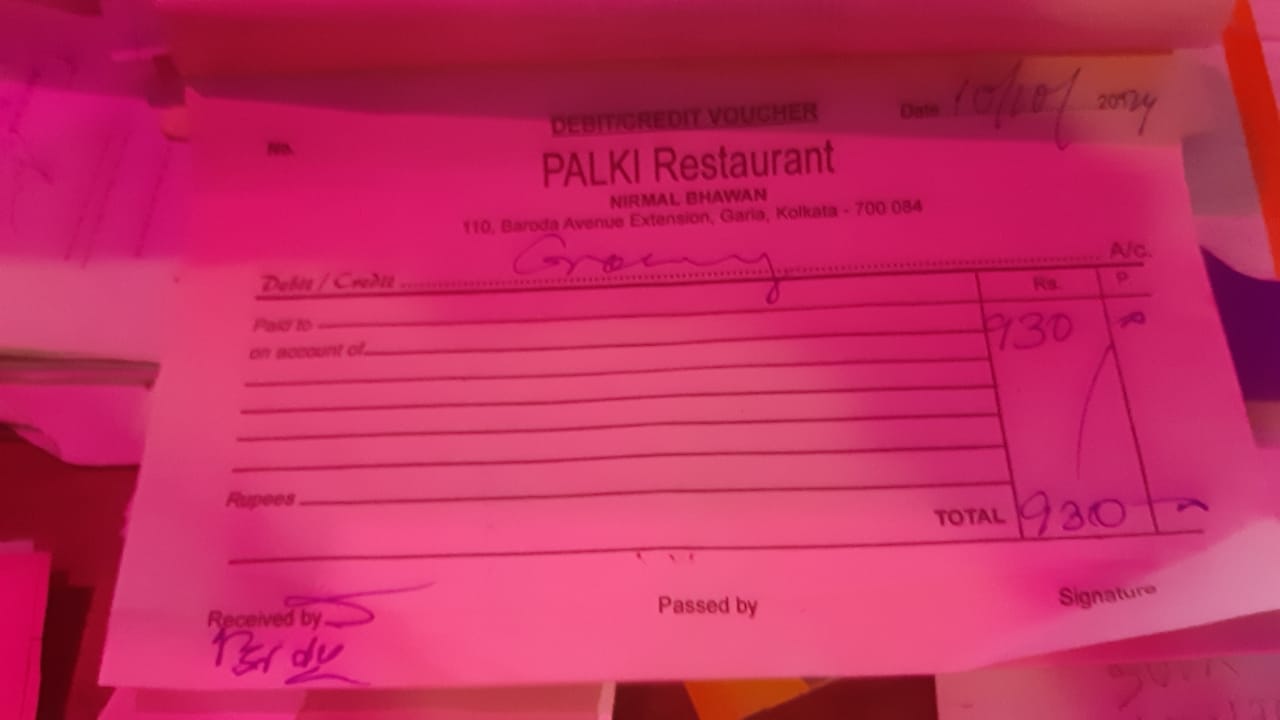 DEBIT/CREDIT VOUCHER
No.
Date 10/10/ 2024
PALKI Restaurant
NIRMAL BHAWAN
110, Baroda Avenue Extension, Garia, Kolkata - 700 084
Debit / Credit Grocery A/c.
Rs. P.
Paid to 930
on account of
Rupees
TOTAL 930
Received by Passed by Signature